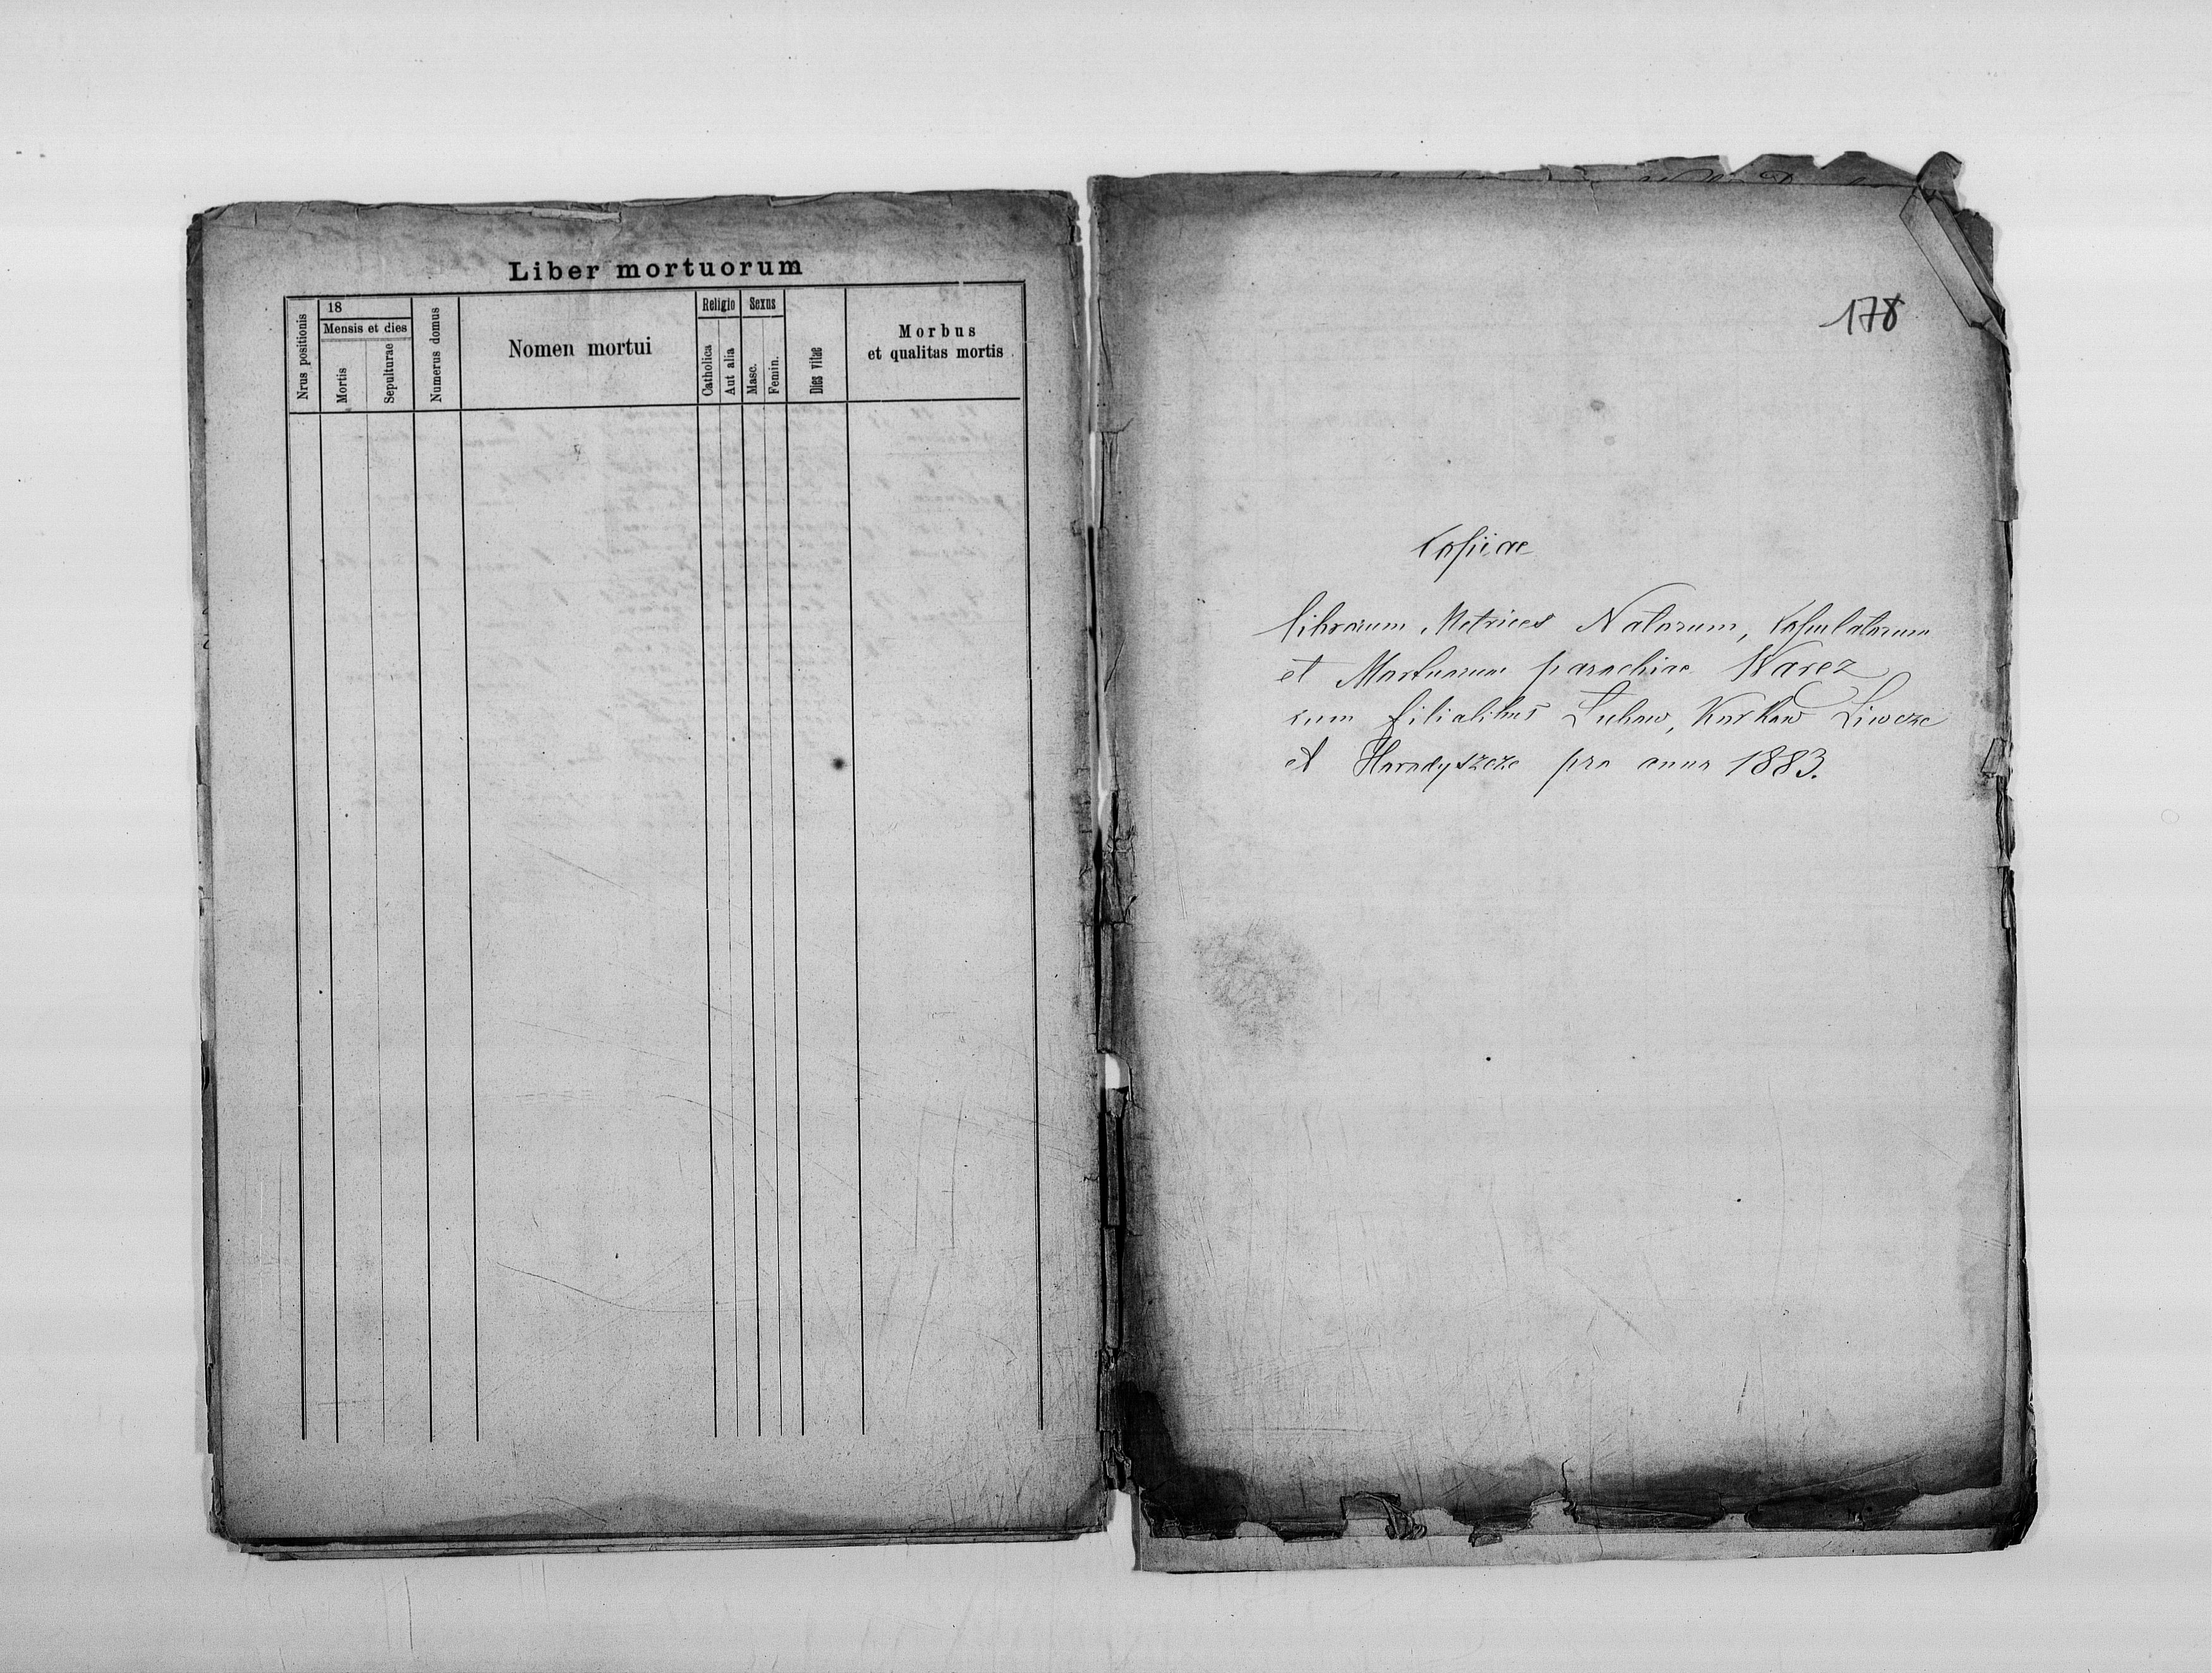 Liber mortuorum
Nrus positionis
18
Mensis et dies
Mortis
Sepulturae
Numerus domus
Nomen mortui
Religio
Catholica
Aut alia
Sexus
Masc.
Femin.
Dies vitae
Morbus
et qualitas mortis
178
Copiae
librorum Metrices Natorum, Copulatorum
et Mortuorum parochiae Warez
cum filialibus Tuhow, Korkow Liwcze
et Horodyszcze pro anno 1883.